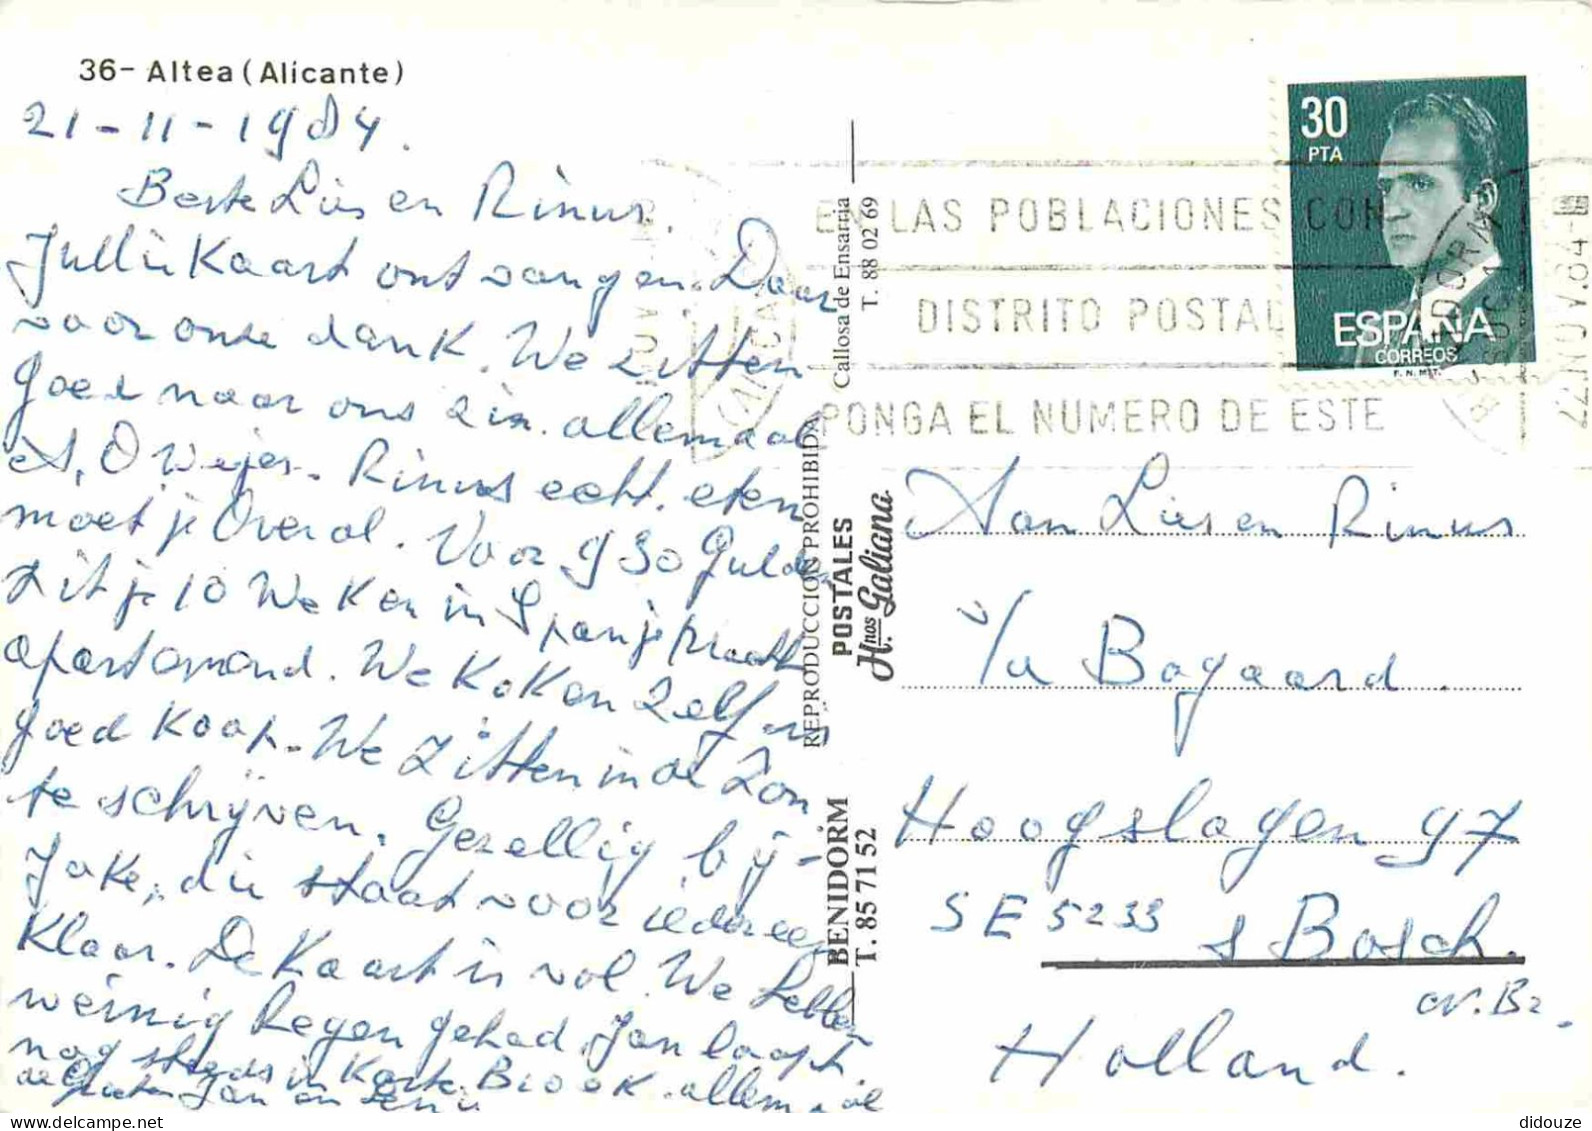 36- Altea (Alicante)
21-11-1984.
Beste Lies en Rinus.
Jullie Kaart ontvangen. Daar
voor onze dank. We zitten
goed naar ons zin. allemaal
Rinus echt. eten
moet je Overal. Voor 930 Gulden
zit je 10 Weken in Spanje
apartement. We Koken zelf
goed Koop. We zitten in de Zon
te schrijven. Gezellig bij-
Joke, die staat voor iedereen
Klaar. De Kaart is vol. We hebben
weinig Regen gehad. Jan loopt
nog steeds in Korte Broek. allemaal
de groeten Jan en
BENIDORM
T. 85 71 52
POSTALES
Hnos. Galiana
REPRODUCCION PROHIBIDA
Callosa de Ensarria
T. 88 02 69
30
PTA
ESPAÑA
CORREOS
F.N.M.T.
EN LAS POBLACIONES CON
DISTRITO POSTAL
PONGA EL NUMERO DE ESTE
BENIDORM
ALICANTE
22 NOV 84
Aan Lies en Rinus
v/d Bogaard.
Hoogslagen 97
SE 5233
s Bosch.
N. Br.
Holland.
didouze
delcampe.net